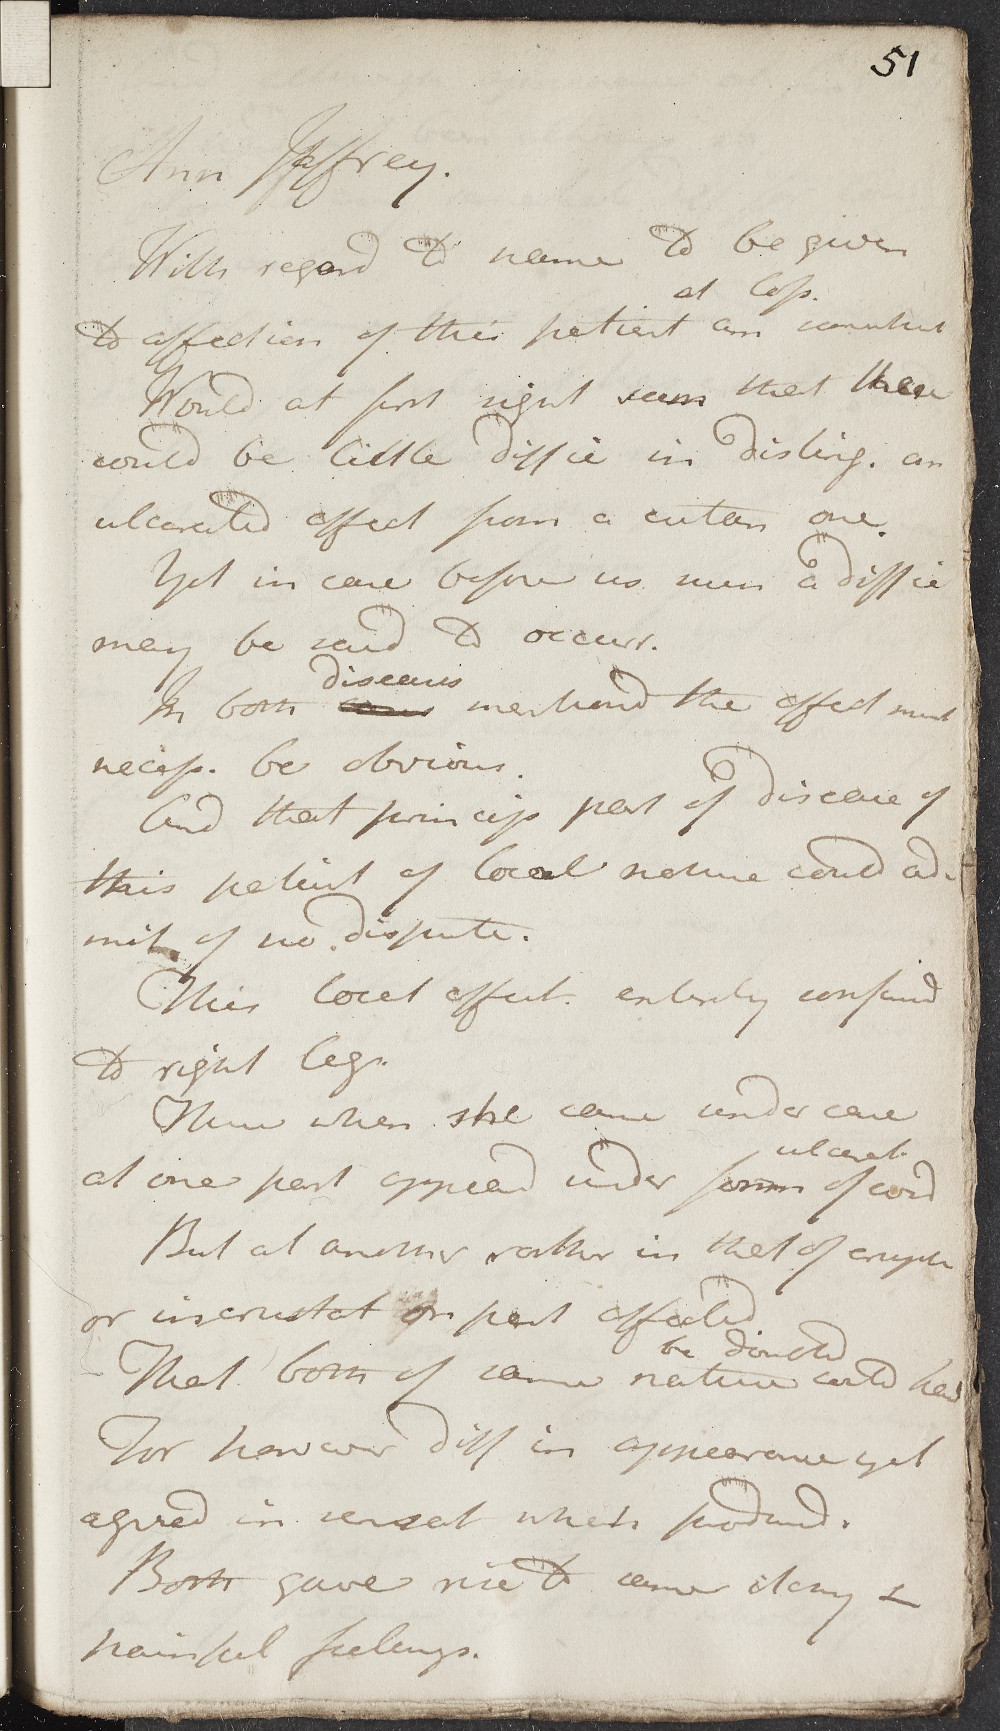 51
Ann Jeffrey.
With regard to name to be given
at loss.
to affection of this patient am somewhat
Would at first sight seem that there
could be little diffic in disting. an
ulcerated affect from a cutan one.
Yet in case before us even a diffic
may be said to occurr.
diseases
In both mentiond the affect must
necess. be obvious.
And that princip part of disease of
this patient of local nature could ad-
mit of no dispute.
This local affect. entirely confind
to right leg.
There when she came under care
ulcerat.
at one part appeard under form of cord
But at another rather in that of erupt
or incrustat on part affected
be doubted
That both of same nature could hard
For however diff in appearance yet
agreed in sensat which producd.
Both gave rise to same itchy &
painful feelings.